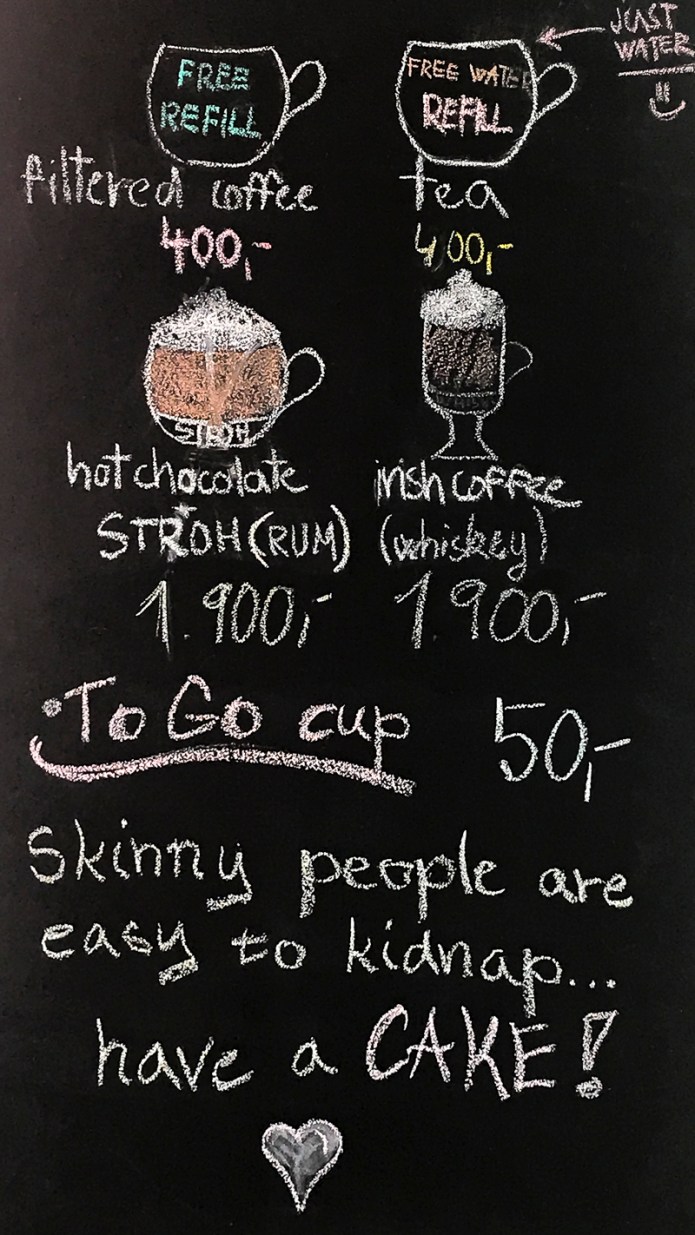 JUST
WATER
FREE
REFILL
FREE WATER
REFILL
filtered coffee
tea
400,-
400,-
STROH
hot chocolate
irish coffee
STROH (RUM)
(whiskey)
1.900,-
1900,-
To Go cup
50,-
Skinny people are
easy to kidnap...
have a CAKE!